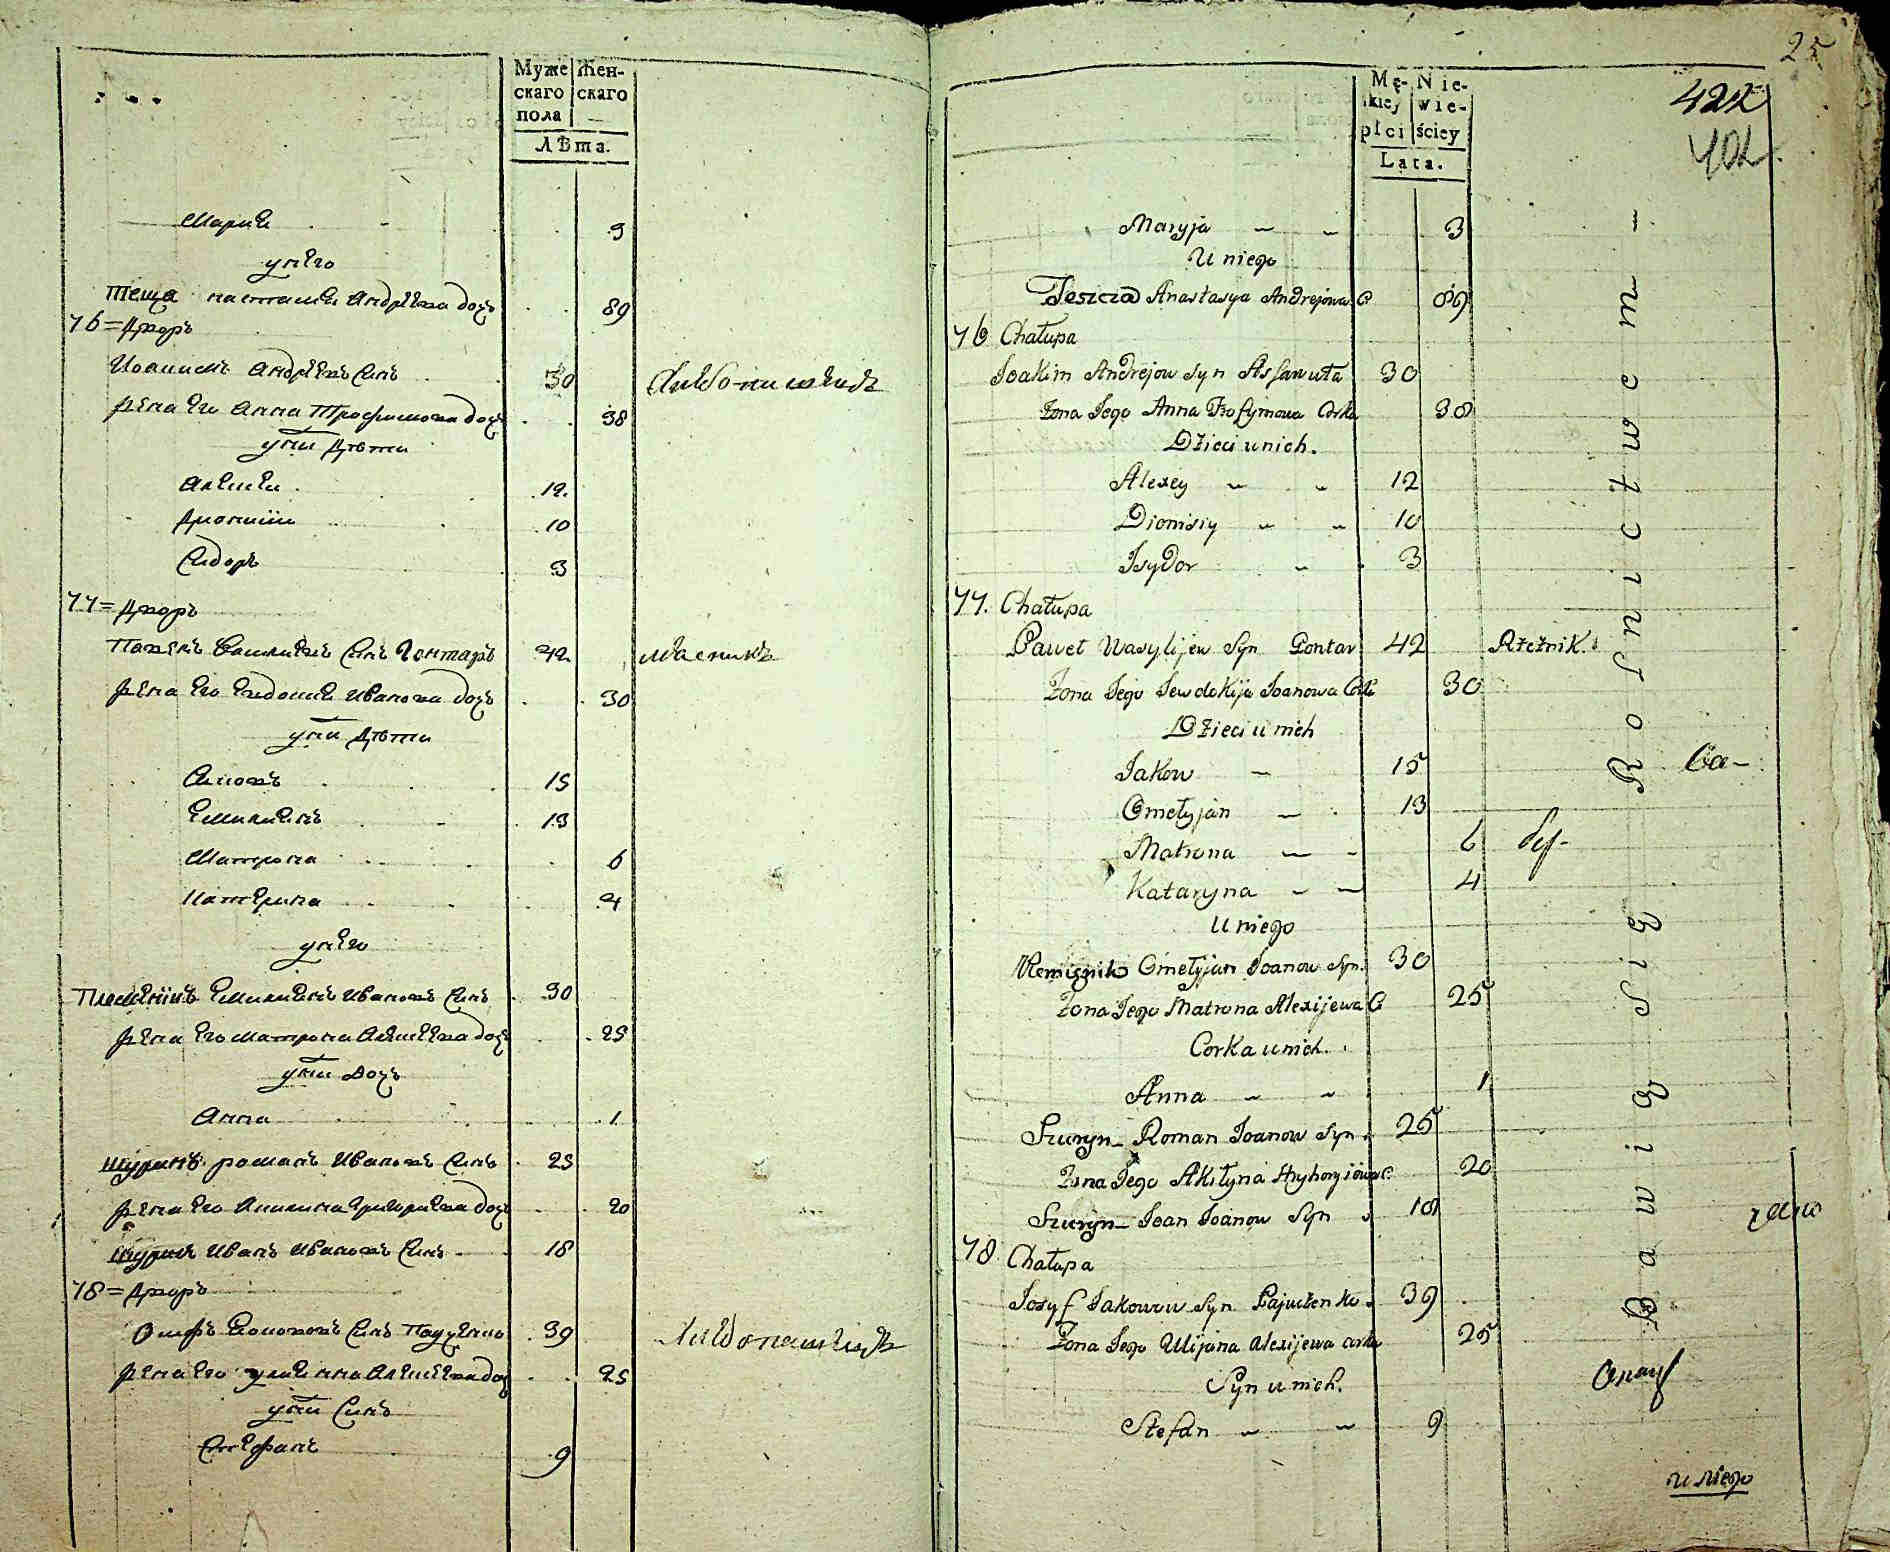 Муже
скаго
пола
Жен-
скаго
Лѣта.
Марія 3
у него
Теща Настасія Андрѣева дочь 89
76 = Дворъ
Иоакимъ Андрѣевъ Синъ 30 Хлѣбопашецъ
Жена Его Анна Трофимова дочь 38
у них Дѣти
Алексѣй 12
Дионисій 10
Сидоръ 3
77 = Дворъ
Павелъ Василіевъ Синъ Гонтаръ 42 Мясникъ
Жена Его Евдокія Иванова дочь 30
у них Дѣти
Яковъ 15
Емиліянъ 13
Матрона 6
Катерина 4
у него
Племѣнникъ Емиліянъ Ивановъ Синъ 30
Жена Его Матрона Алексѣева дочь 25
у них дочь
Анна 1
Шуринъ Романъ Ивановъ Синъ 25
Жена Его Акилина Григоріева дочь 20
Шуринъ Иванъ Ивановъ Синъ 18
78 = Дворъ
Осифъ Якововъ Синъ 39 Хлѣбопашецъ
Жена Его Улиянна Алексѣева дочь 25
у них Синъ
Стефанъ 9
25
422
402
Mę-
skiey
płci
Nie-
wie-
ściey
Lata.
Maryja 3
U niego
Teszcza Anastasya Andrejowa C 89
76 Chałupa
Joakim Andrejow Syn Assawuła 30
Żona Jego Anna Trofymowa Corka 38
Dzieci u nich.
Alexey 12
Dionisiy 10
Isydor 3
77. Chałupa
Paweł Wasylijew Syn Gontar 42 Rzeźnik
Żona Jego Jewdokija Joanowa Corka 30
Dzieci u nich
Jakow 15
Omełyjan 13
Matrona 6
Kataryna 4
U niego
Omełyjan Joanow Syn. 30
Żona Jego Matrona Alexijewa C 25
Corka u nich.
Anna 1
Szuryn Roman Joanow Syn 25
Żona Jego Akiłyna Hryhoryiowa C. 20
Szuryn Joan Joanow Syn 18
78 Chałupa
Josyf Jakowow Syn 39
Żona Jego Ulijana Alexijewa corka 25
Syn u nich.
Stefan 9
u niego
Bawią się Rolnictwem